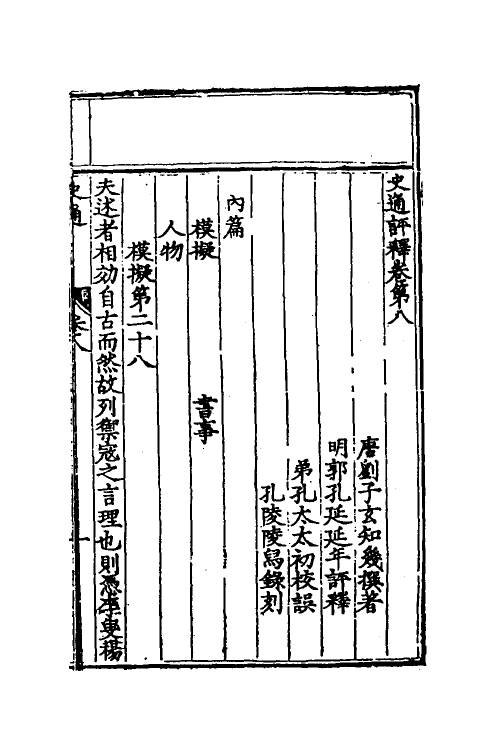 史通評釋卷第八
唐劉子玄知幾撰著
明郭孔延延年評釋
弟孔太太初校誤
孔陵陵寫錄刻
內篇
模擬 書事
人物
模擬第二十八
夫述者相効自古而然故列禦寇之言理也則憑李叟楊
史通 卷八 一